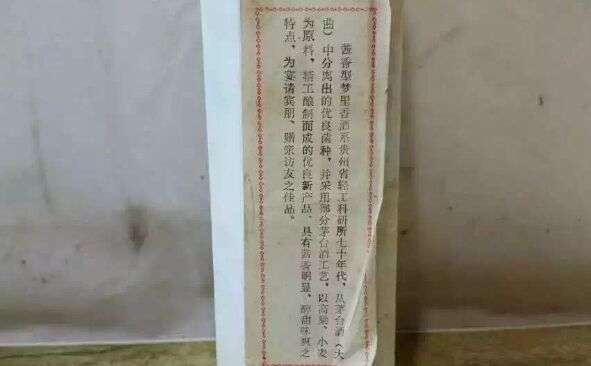 酱香型梦里香酒系贵州省轻工科研所七十年代，从茅台酒（大
曲）中分离出的优良菌种，并采用部分茅台酒工艺，以高粱、小麦
为原料，精工酿制而成的优良新产品。具有酱香明显，醇甜味爽之
特点，为宴请宾朋、赠亲访友之佳品。